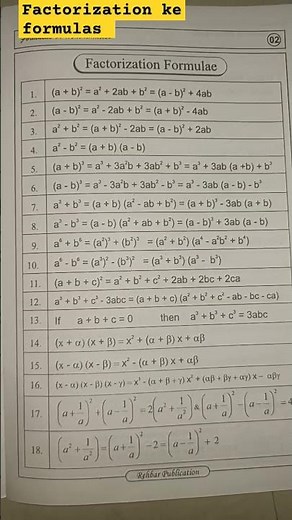 Factorization ke
formulas
02
Factorization Formulae
1. (a + b)² = a² + 2ab + b² = (a - b)² + 4ab
2. (a - b)² = a² - 2ab + b² = (a + b)² - 4ab
3. a² + b² = (a + b)² - 2ab = (a - b)² + 2ab
4. a² - b² = (a + b) (a - b)
5. (a + b)³ = a³ + 3a²b + 3ab² + b³ = a³ + 3ab (a +b) + b³
6. (a - b)³ = a³ - 3a²b + 3ab² - b³ = a³ - 3ab (a - b) - b³
7. a³ + b³ = (a + b) (a² - ab + b²) = (a + b)³ - 3ab (a + b)
8. a³ - b³ = (a - b) (a² + ab + b²) = (a - b)³ + 3ab (a - b)
9. a⁶ + b⁶ = (a²)³ + (b²)³ = (a² + b²) (a⁴ - a²b² + b⁴)
10. a⁶ - b⁶ = (a³)² - (b³)² = (a³ + b³) (a³ - b³)
11. (a + b + c)² = a² + b² + c² + 2ab + 2bc + 2ca
12. a³ + b³ + c³ - 3abc = (a + b + c) (a² + b² + c² - ab - bc - ca)
13. If a + b + c = 0 then a³ + b³ + c³ = 3abc
14. (x + α) (x + β) = x² + (α + β) x + αβ
15. (x - α) (x - β) = x² - (α + β) x + αβ
16. (x - α) (x - β) (x - γ) = x³ - (α + β + γ) x² + (αβ + βγ + αγ) x - αβγ
17. (a + 1/a)² + (a - 1/a)² = 2(a² + 1/a²) & (a + 1/a)² - (a - 1/a)² = 4
18. (a² + 1/a²) = (a + 1/a)² - 2 = (a - 1/a)² + 2
Rehbar Publication